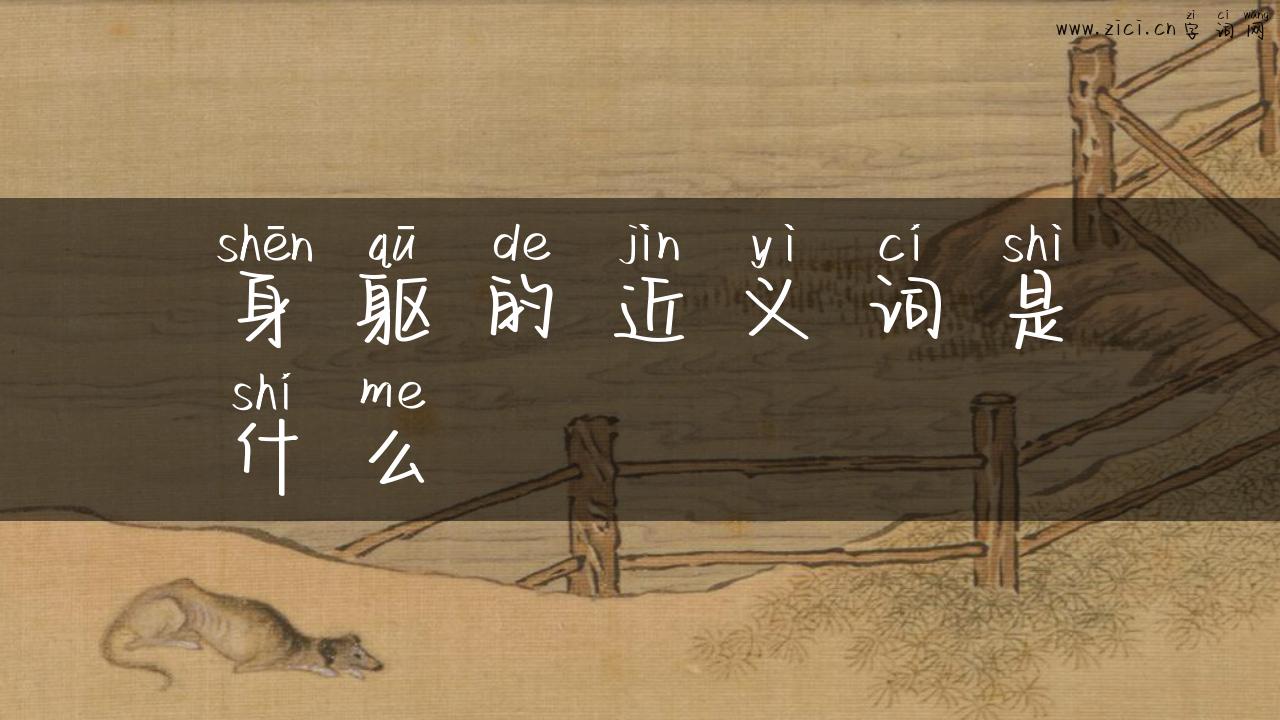 zì cí wǎng
www.zici.cn 字词网
shēn qū de jìn yì cí shì
身躯的近义词是
shí me
什么